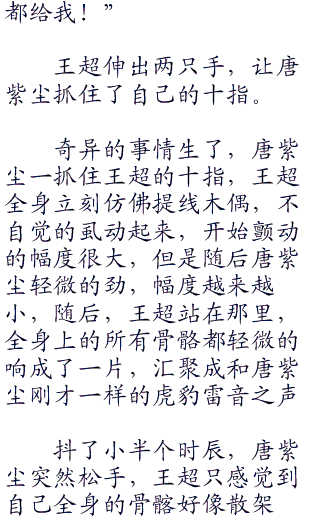 都给我！”
王超伸出两只手，让唐
紫尘抓住了自己的十指。
奇异的事情生了，唐紫
尘一抓住王超的十指，王超
全身立刻仿佛提线木偶，不
自觉的虱动起来，开始颤动
的幅度很大，但是随后唐紫
尘轻微的劲，幅度越来越
小，随后，王超站在那里，
全身上的所有骨骼都轻微的
响成了一片，汇聚成和唐紫
尘刚才一样的虎豹雷音之声
抖了小半个时辰，唐紫
尘突然松手，王超只感觉到
自己全身的骨骼好像散架